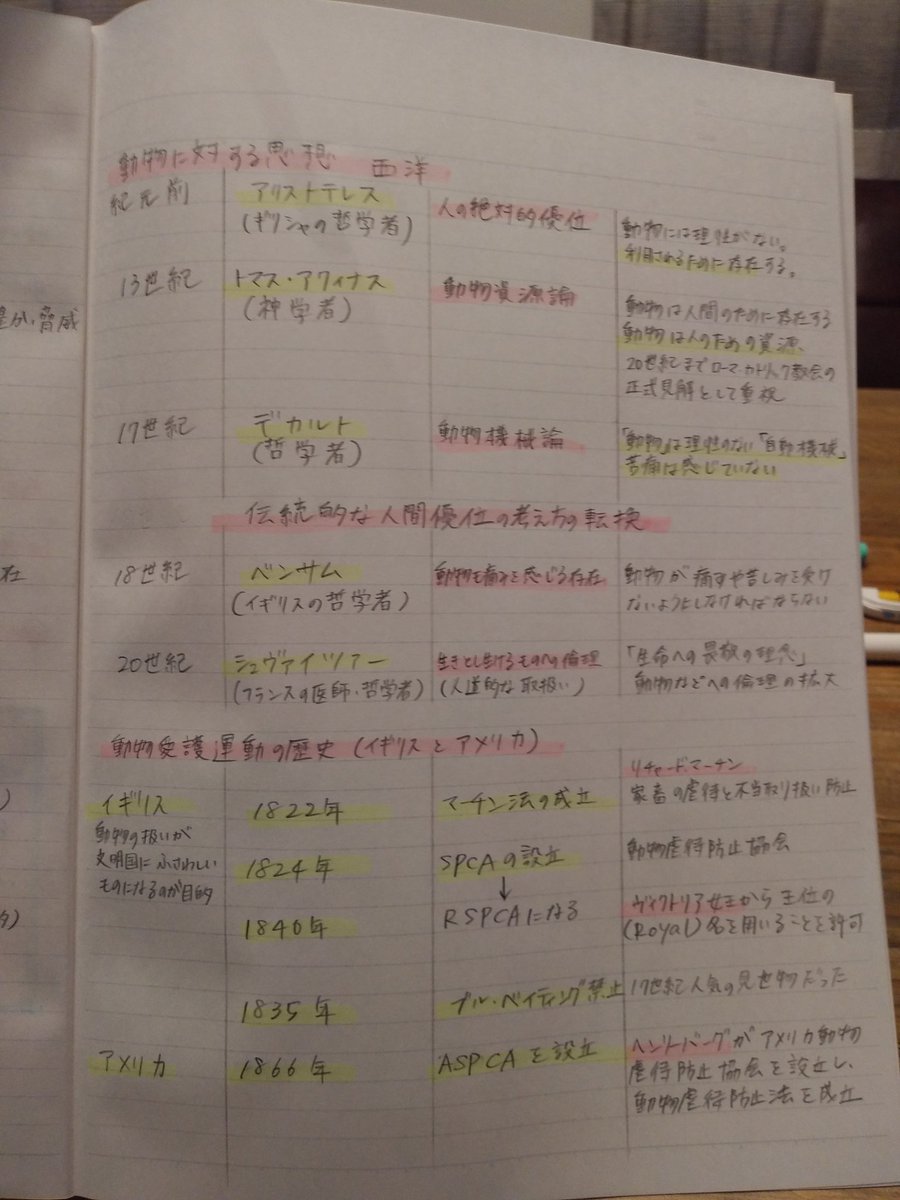 動物に対する思想 西洋
紀元前 アリストテレス 人の絶対的優位 動物には理性がない。
(ギリシャの哲学者) 利用されるために存在する。
13世紀 トマス・アクィナス 動物資源論 動物は人間のために存在する
(神学者) 動物は人のための資源、
20世紀までローマ・カトリック教会の
正式見解として重視
17世紀 デカルト 動物機械論 「動物」は理性のない「自動機械」
(哲学者) 苦痛は感じていない
伝統的な人間優位の考え方の転換
18世紀 ベンサム 動物も痛みを感じる存在 動物が痛すや苦しみを受け
(イギリスの哲学者) ないようにしなければならない
20世紀 シュヴァイツァー 生きとし生けるものへの倫理 「生命への畏敬の理念」
(フランスの医師・哲学者) (人道的な取扱い) 動物などへの倫理の拡大
動物愛護運動の歴史(イギリスとアメリカ)
リチャード・マーチン
イギリス 1822年 マーチン法の成立 家畜の虐待と不当取り扱い防止
動物の扱いが
文明国にふさわしい
ものになるのが目的
1824年 SPCAの設立 動物虐待防止協会
↓
1840年 RSPCAになる ヴィクトリア女王から王位の
(Royal)名を用いることを許可
1835年 ブル・ベイティング禁止 17世紀人気の見世物だった
アメリカ 1866年 ASPCAを設立 ヘンリーバーグがアメリカ動物
虐待防止協会を設立し、
動物虐待防止法を成立
脅威
在
)
)